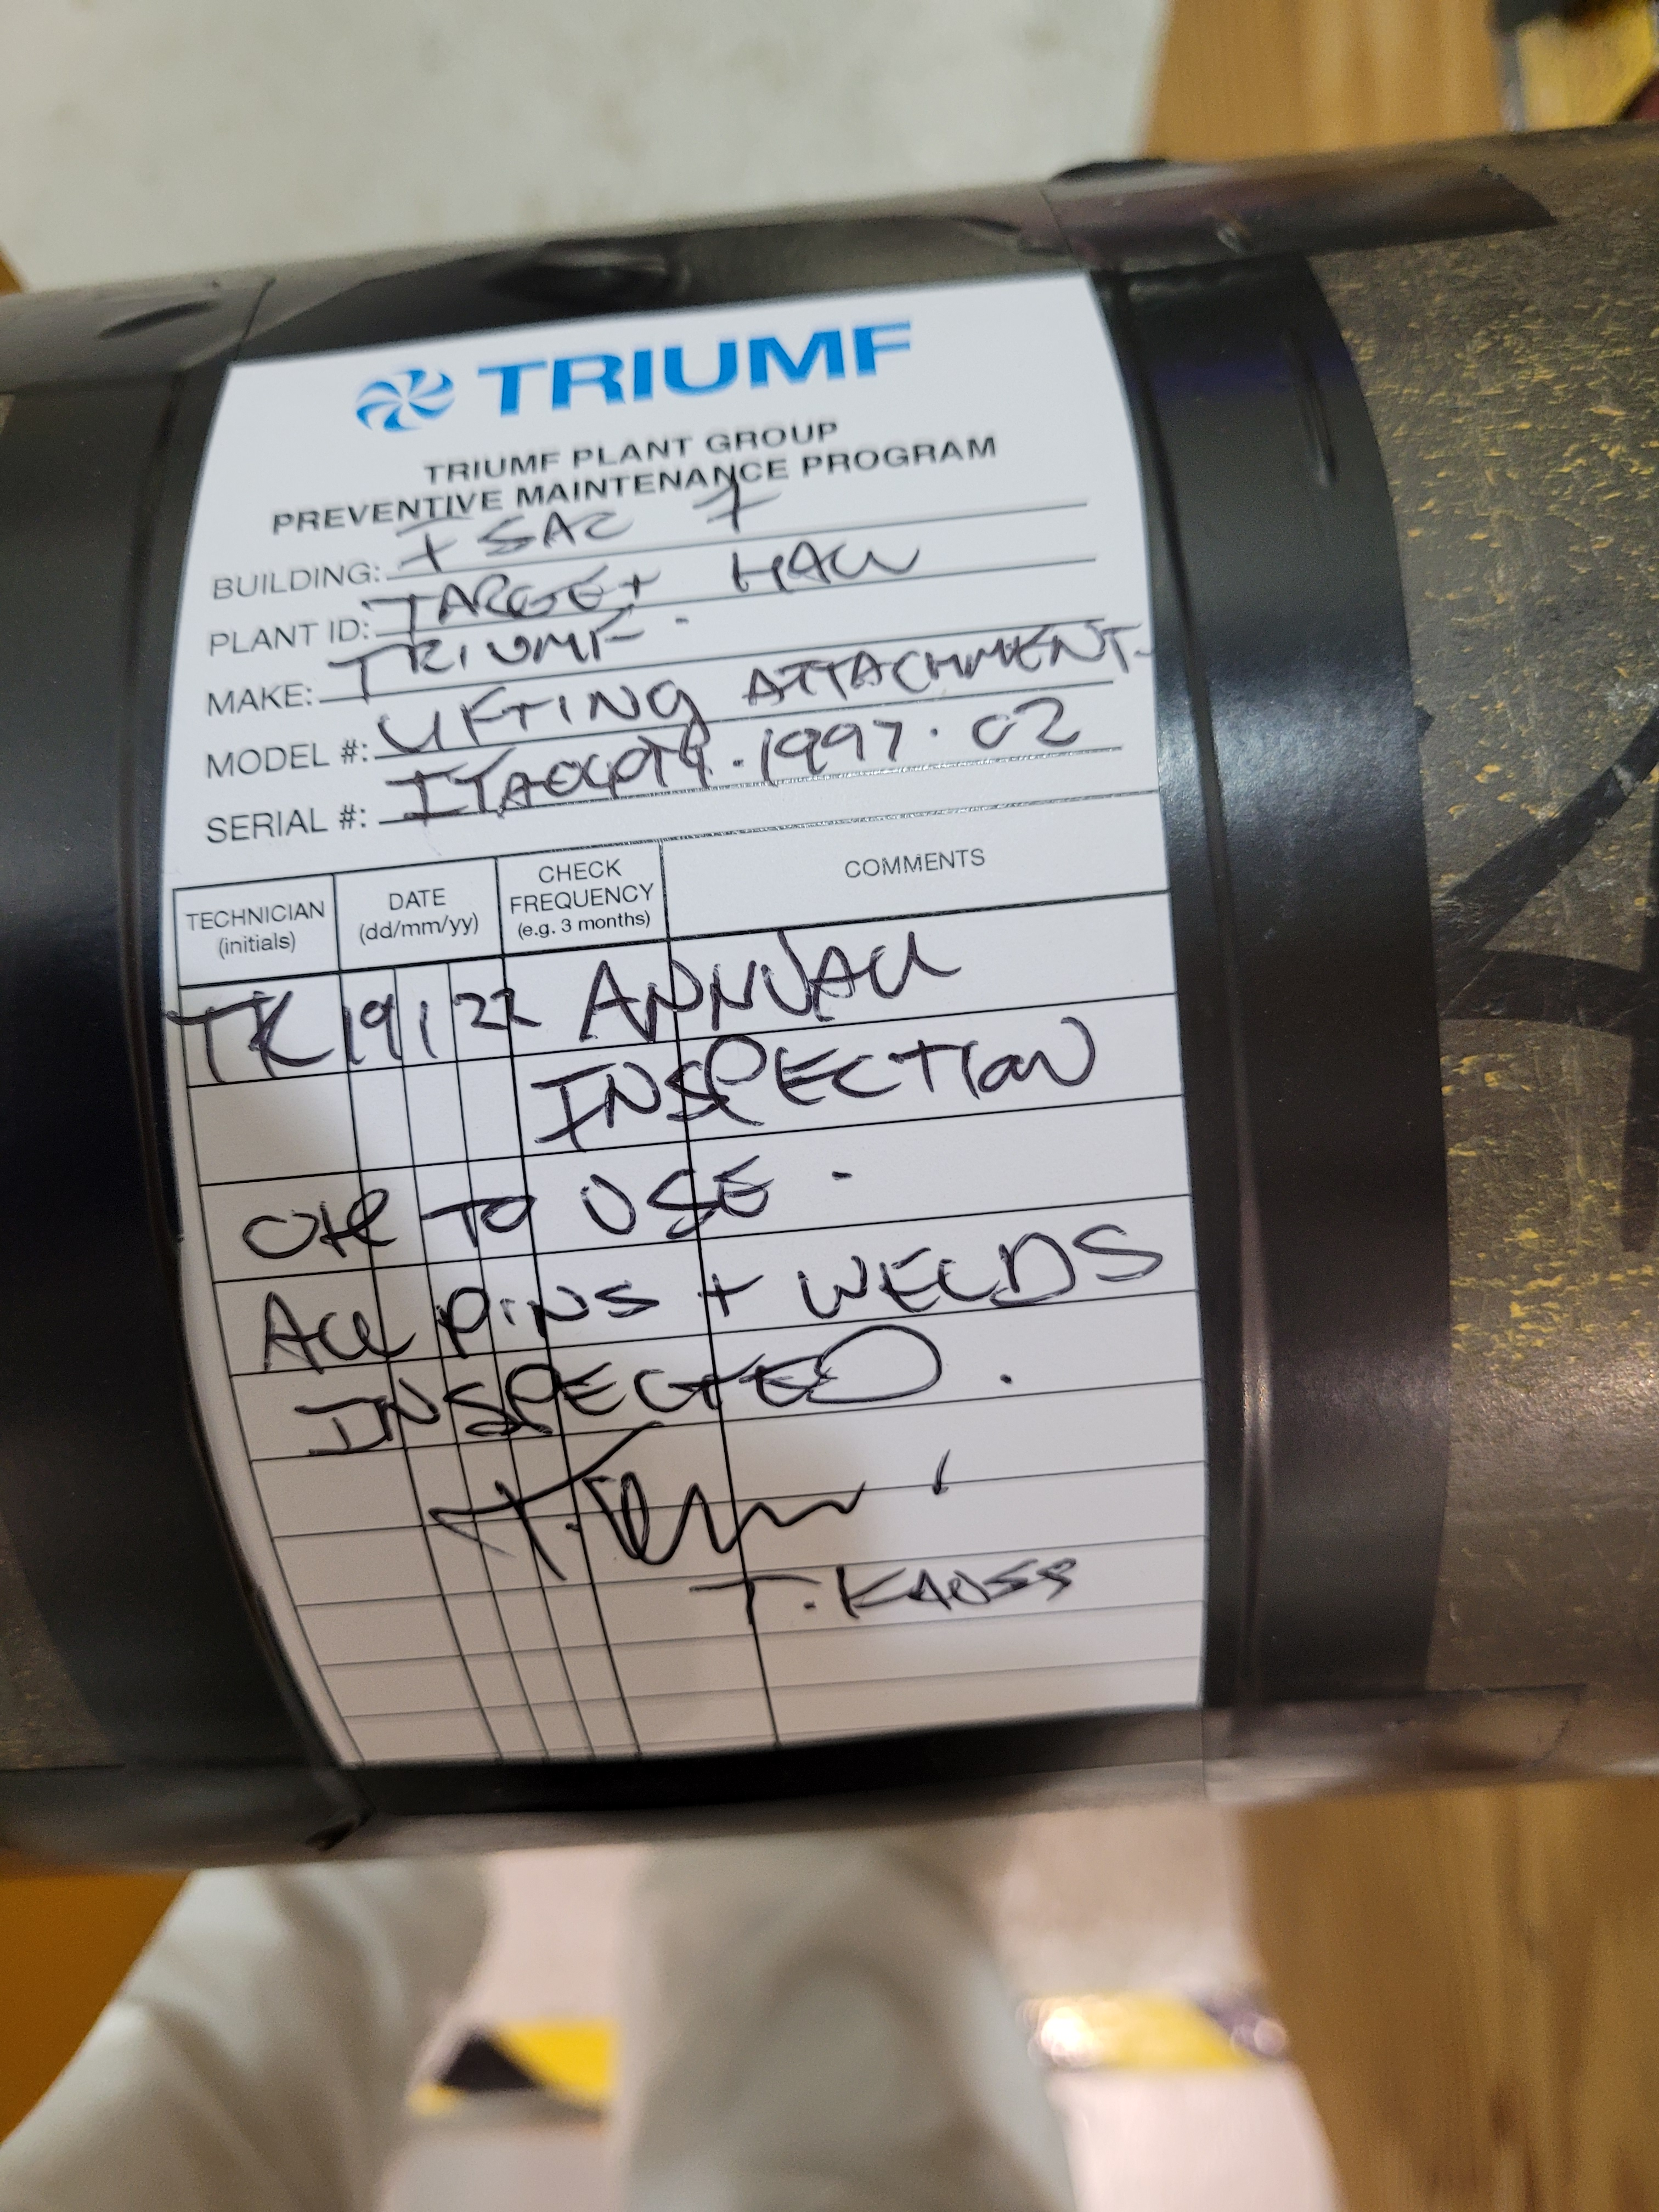 TRIUMF
TRIUMF PLANT GROUP
PREVENTIVE MAINTENANCE PROGRAM
BUILDING: ISAC I
PLANT ID: TARGET HALL
MAKE: TRIUMF.
MODEL #: LIFTING ATTACHMENT.
SERIAL #: .1997.02
TECHNICIAN (initials) DATE (dd/mm/yy) CHECK FREQUENCY (e.g. 3 months) COMMENTS
TK 19 1 22 ANNUAL
INSPECTION
OK TO USE.
ALL PINS + WELDS
INSPECTED.
T. KAUSS